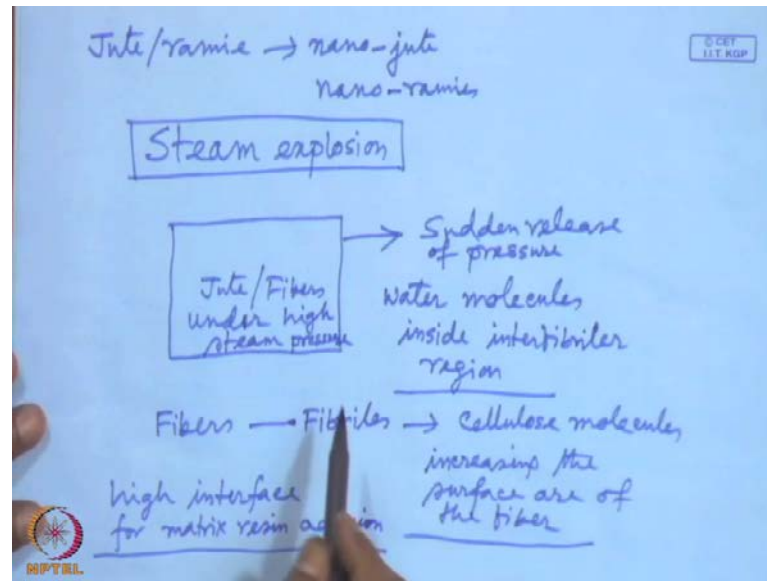 Jute/ramie → nano-jute
nano-ramies
© CET
I.I.T. KGP
Steam explosion
Jute/Fibers
under high
steam pressure
Sudden release
of pressure
Water molecules
inside interfibriler
region
Fibers — Fibriles → Cellulose molecules
increasing the
surface are of
the fiber
high interface
for matrix resin
NPTEL